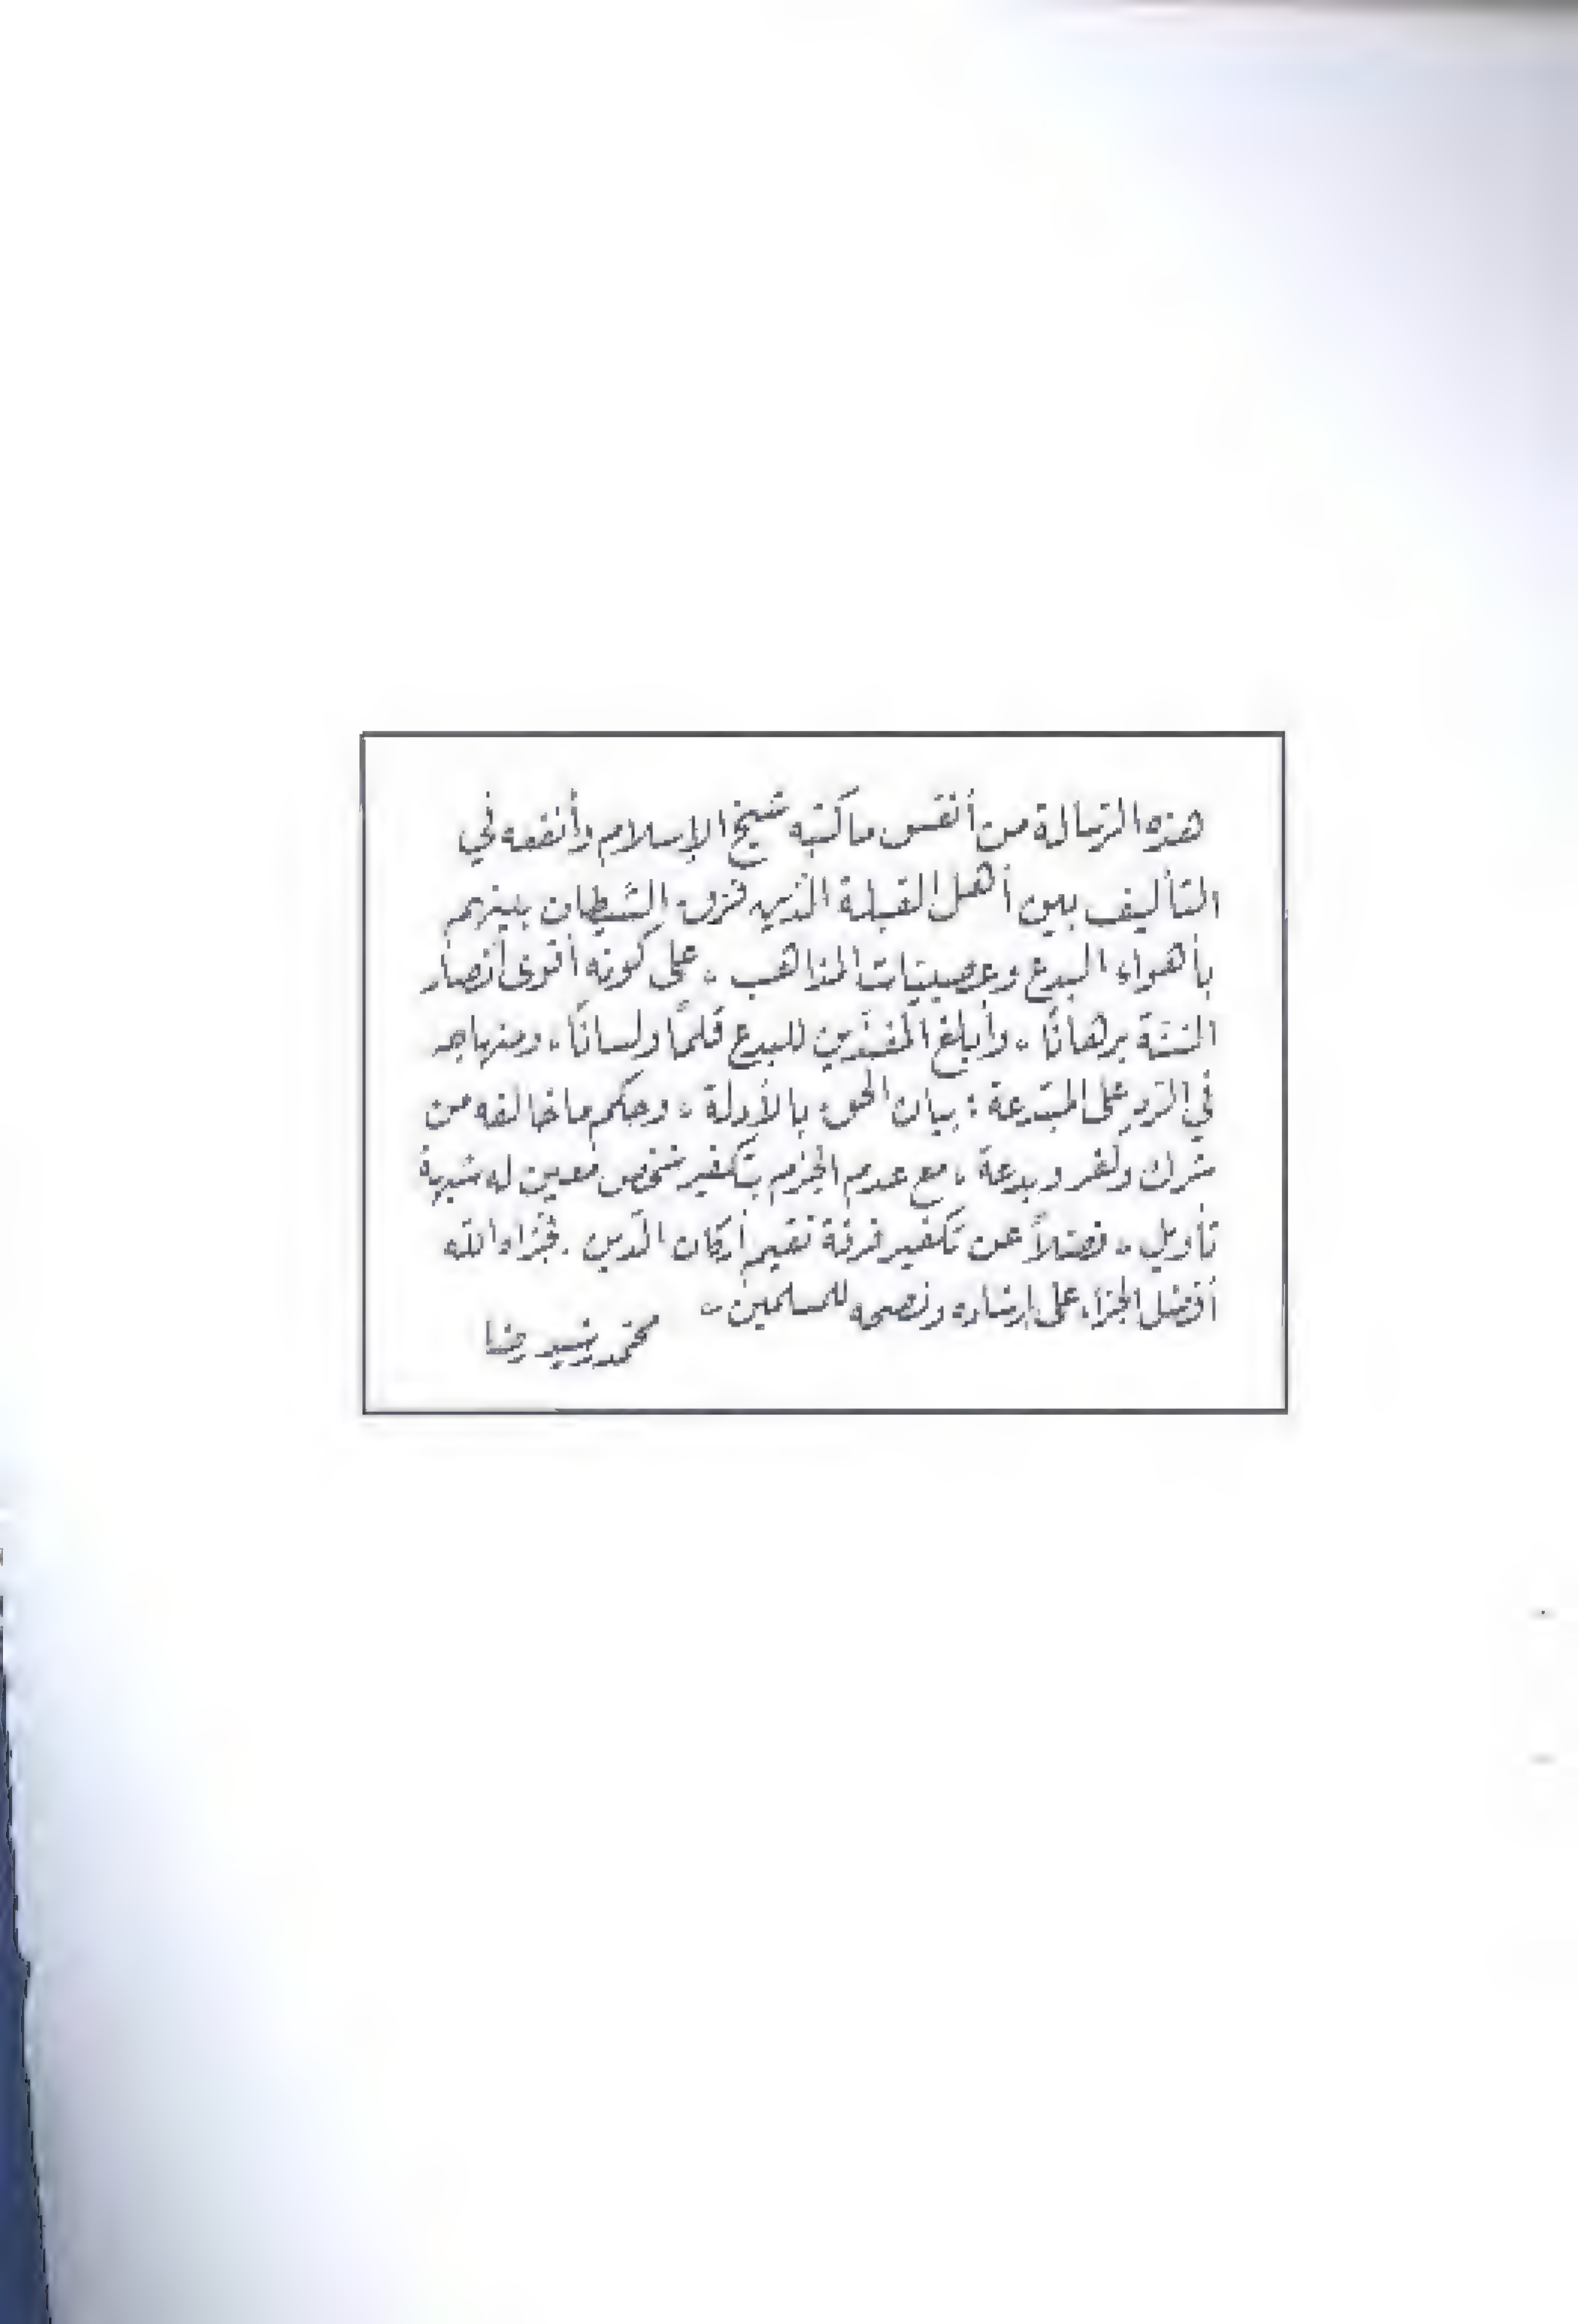 هذه الرسالة من أنفس ما كتبه شيخ الإسلام وأنفعه في
التأليف بين أهل القبلة الذين فرق الشيطان بينهم
بأهواء البدع وعصبيات المذاهب ، على كونه أقوى أنصار
السنة برهاناً ، وأبلغ المفندين للبدع قلماً ولساناً ، ومنهاجه
في الرد على المبتدعة : بيان الحق بالأدلة ، وحكم ما خالفه من
شرك وكفر وبدعة ، مع عدم الجزم بتكفير شخص معين له شبهة
تأويل ، فضلاً عن تكفير فرقة تقيم أركان الدين . فجزاه الله
أفضل الجزاء على إرشاده ونصحه للمسلمين .
محمد رشيد رضا